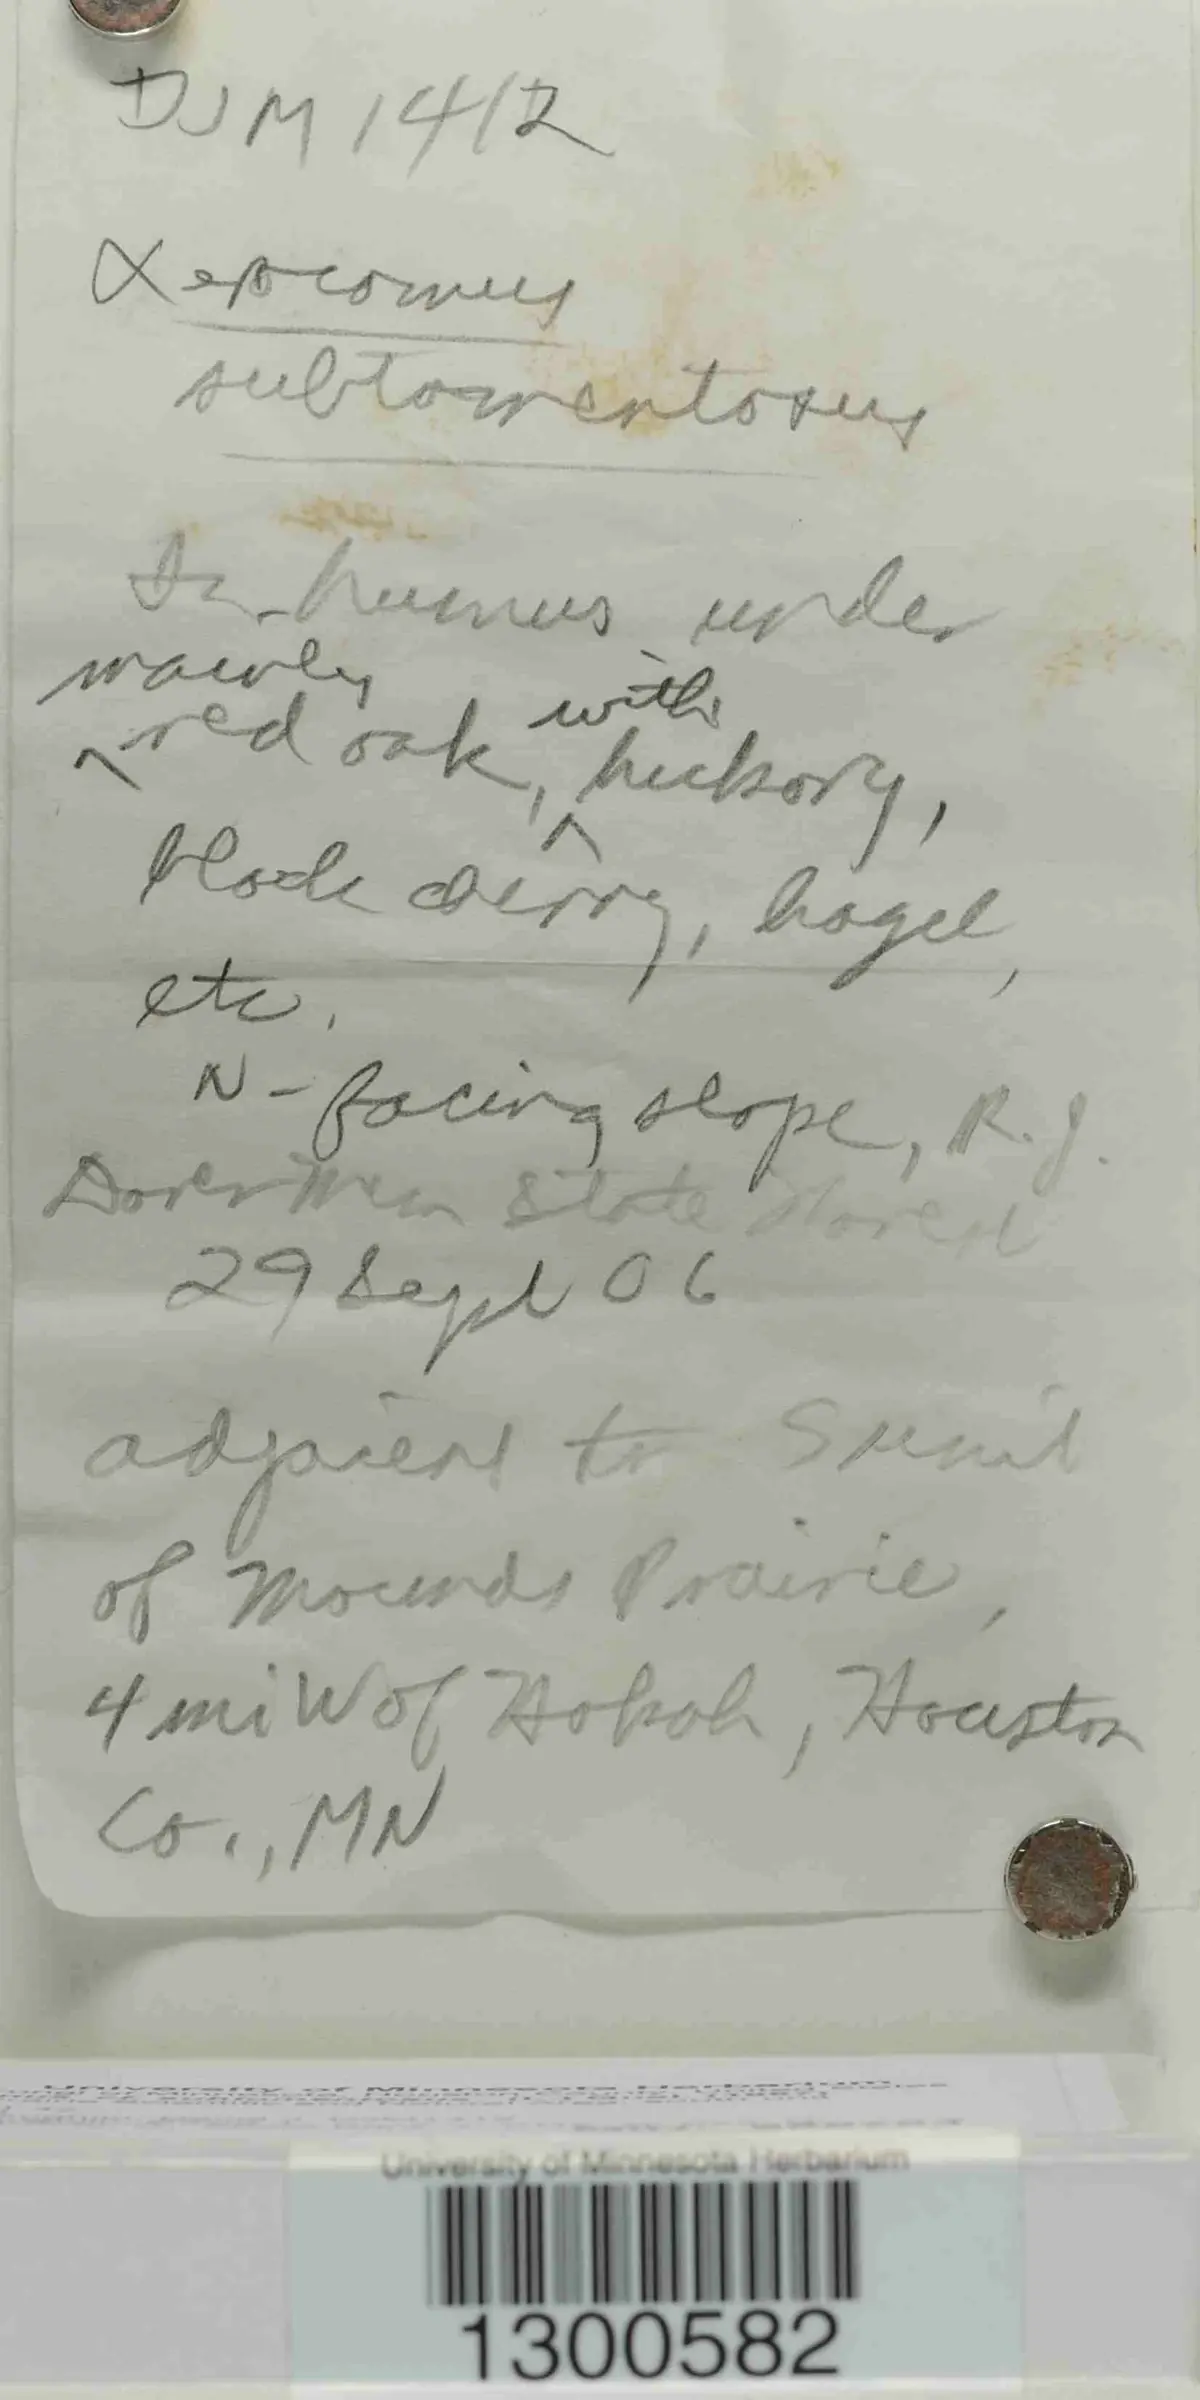 DJM 1412
Xerocomus
subtomentosus
In humus under
mainly
red oak, with hickory,
black cherry, hazel,
etc.
N-facing slope, R.J.
Dorer Mem State Forest
29 Sept 06
adjacent to Summit
of Mounds Prairie,
4 mi W of Hokah, Houston
Co., MN
University of Minnesota Herbarium
University of Minnesota Herbarium
1300582